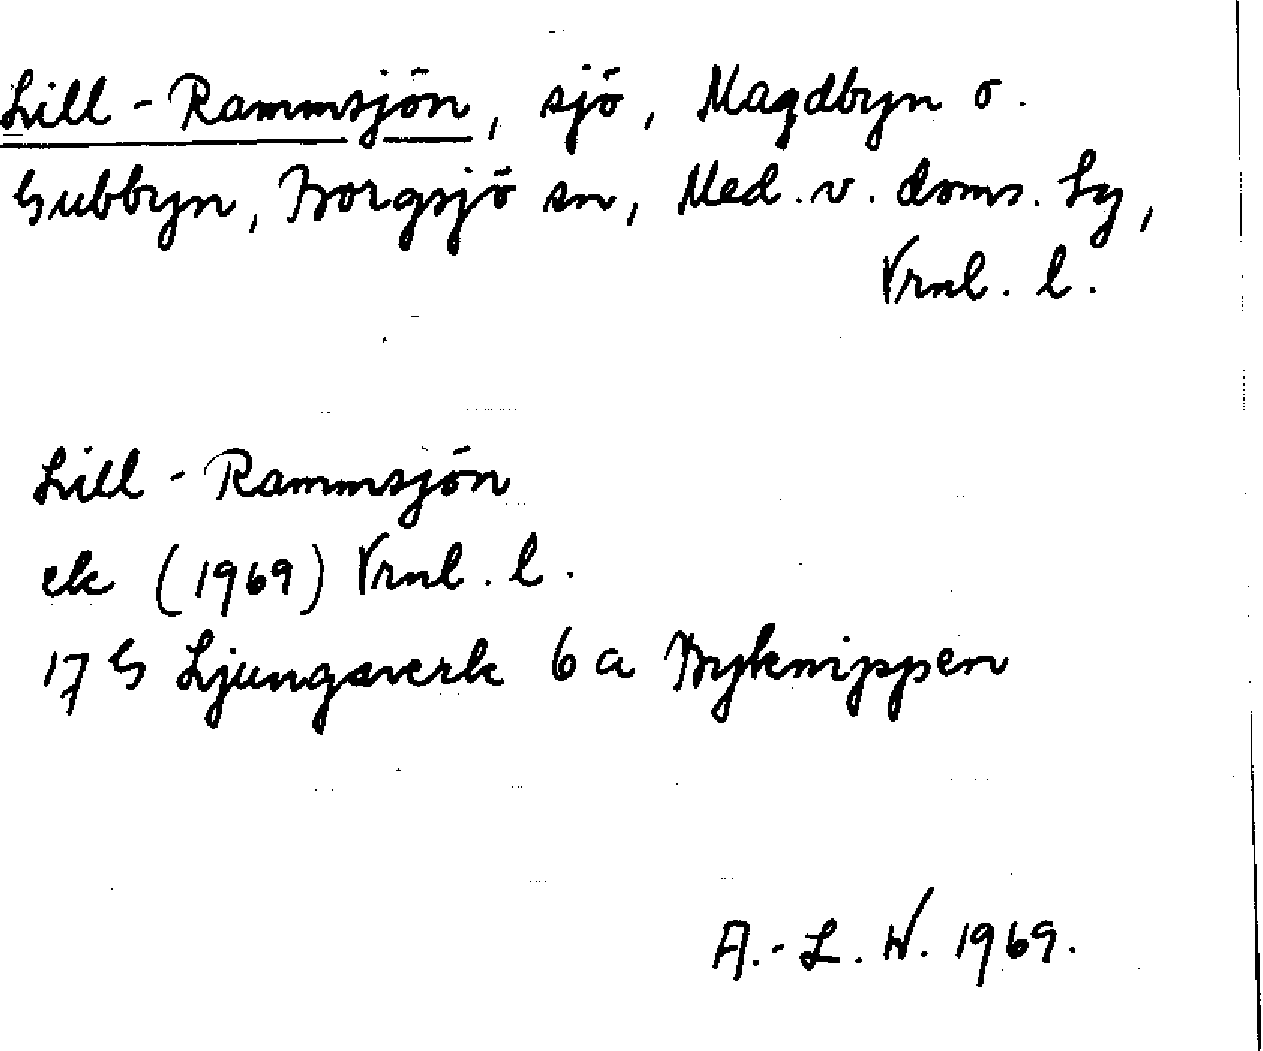 Lill-Rammsjön, sjö, Magdbyn o.
Gubbyn, Borgsjö sn, Med. v. doms. lg,
Vrnl. l.
Lill-Rammsjön
ek (1969) Vrnl. l.
17G Ljungaverk 6a Byknippen
A.-L. W. 1969.